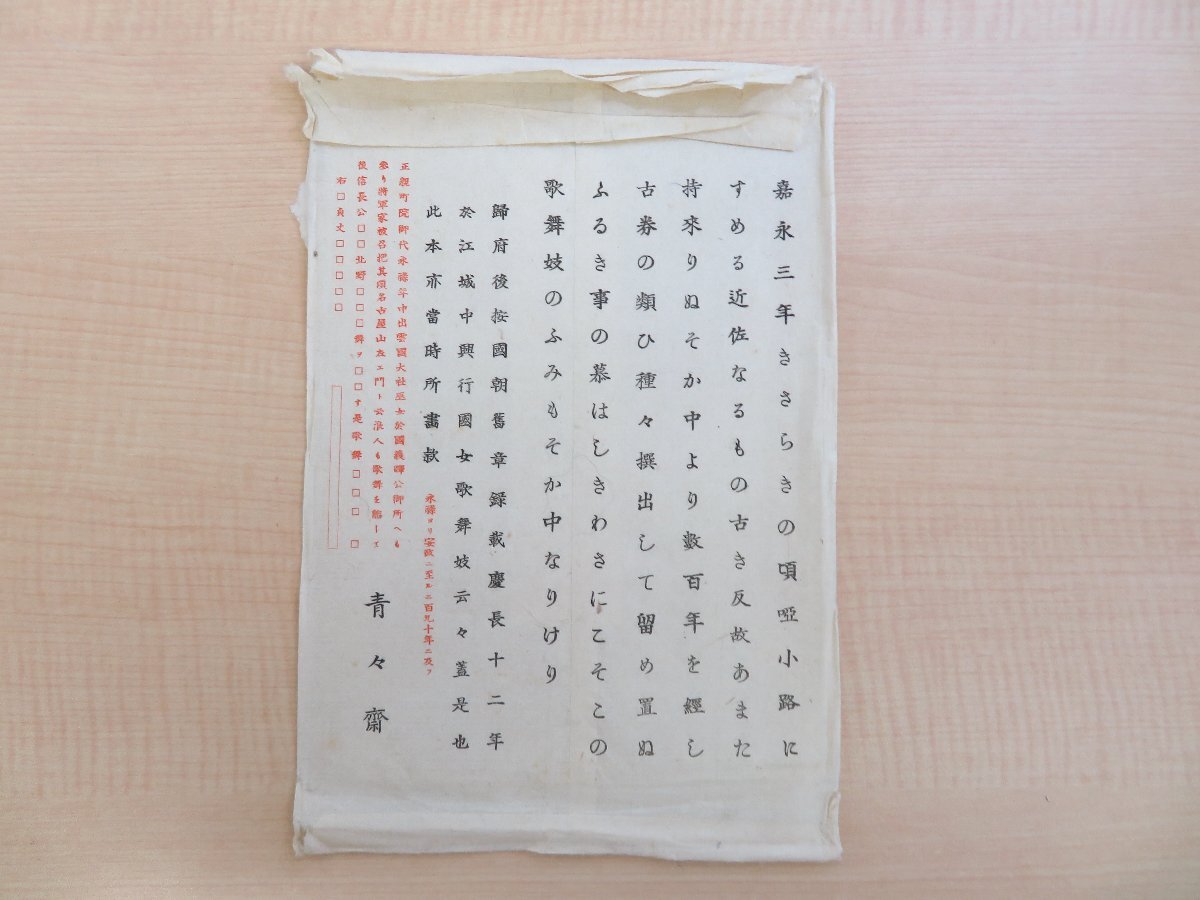 嘉永三年きさらきの頃啞小路に
すめる近佐なるもの古き反故あまた
持來りぬそか中より數百年を經し
古券の類ひ種々撰出して留め置ぬ
ふるき事の慕はしきわさにこそこの
歌舞妓のふみもそか中なりけり
歸府後按國朝舊章録載慶長十二年
於江城中興行國女歌舞妓云々蓋是也
此本亦當時所畫歟
永祿ヨリ安政ニ至ルニ百九十年ニ及フ
青々齋
正親町院御代永祿年中出雲國大社巫女於國義輝公御所へも
參り將軍家被召把其須名古屋山左エ門ト云浪人も歌舞を能シテ
後信長公□□北野□□□舞ヲ□□す是歌舞□□□□
右□貞丈□□□□□